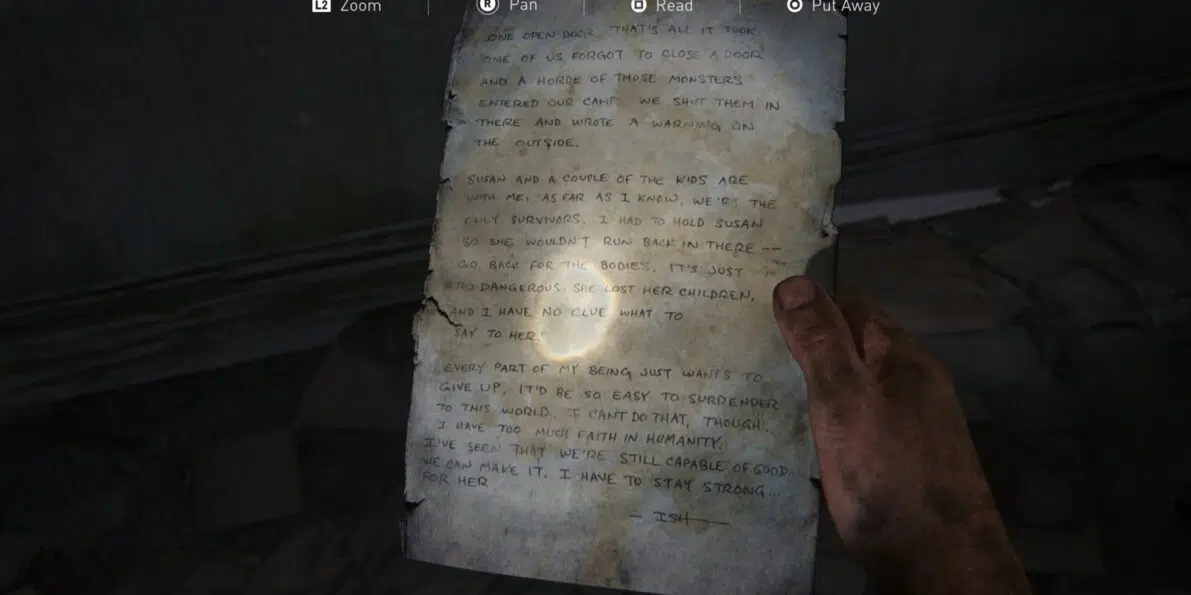 L2 Zoom R Pan Read Put Away
ONE OPEN DOOR. THAT'S ALL IT TOOK.
ONE OF US FORGOT TO CLOSE A DOOR
AND A HORDE OF THOSE MONSTERS
ENTERED OUR CAMP. WE SHUT THEM IN
THERE AND WROTE A WARNING ON
THE OUTSIDE.
SUSAN AND A COUPLE OF THE KIDS ARE
WITH ME. AS FAR AS I KNOW, WE'RE THE
ONLY SURVIVORS. I HAD TO HOLD SUSAN
SO SHE WOULDN'T RUN BACK IN THERE --
GO BACK FOR THE BODIES. IT'S JUST
TOO DANGEROUS. SHE LOST HER CHILDREN,
AND I HAVE NO CLUE WHAT TO
SAY TO HER.
EVERY PART OF MY BEING JUST WANTS TO
GIVE UP, IT'D BE SO EASY TO SURRENDER
TO THIS WORLD. I CAN'T DO THAT, THOUGH.
I HAVE TOO MUCH FAITH IN HUMANITY.
I'VE SEEN THAT WE'RE STILL CAPABLE OF GOOD.
WE CAN MAKE IT. I HAVE TO STAY STRONG...
FOR HER
- ISH